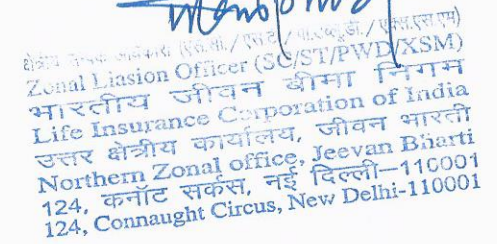 (एस.सी./एस.टी./पी.डब्लू.डी./एक्स.एस.एम)
Zonal Liasion Officer (SC/ST/PWD/XSM)
भारतीय जीवन बीमा निगम
Life Insurance Corporation of India
उत्तर क्षेत्रीय कार्यालय, जीवन भारती
Northern Zonal office, Jeevan Bharti
124, कनॉट सर्कस, नई दिल्ली–110001
124, Connaught Circus, New Delhi-110001